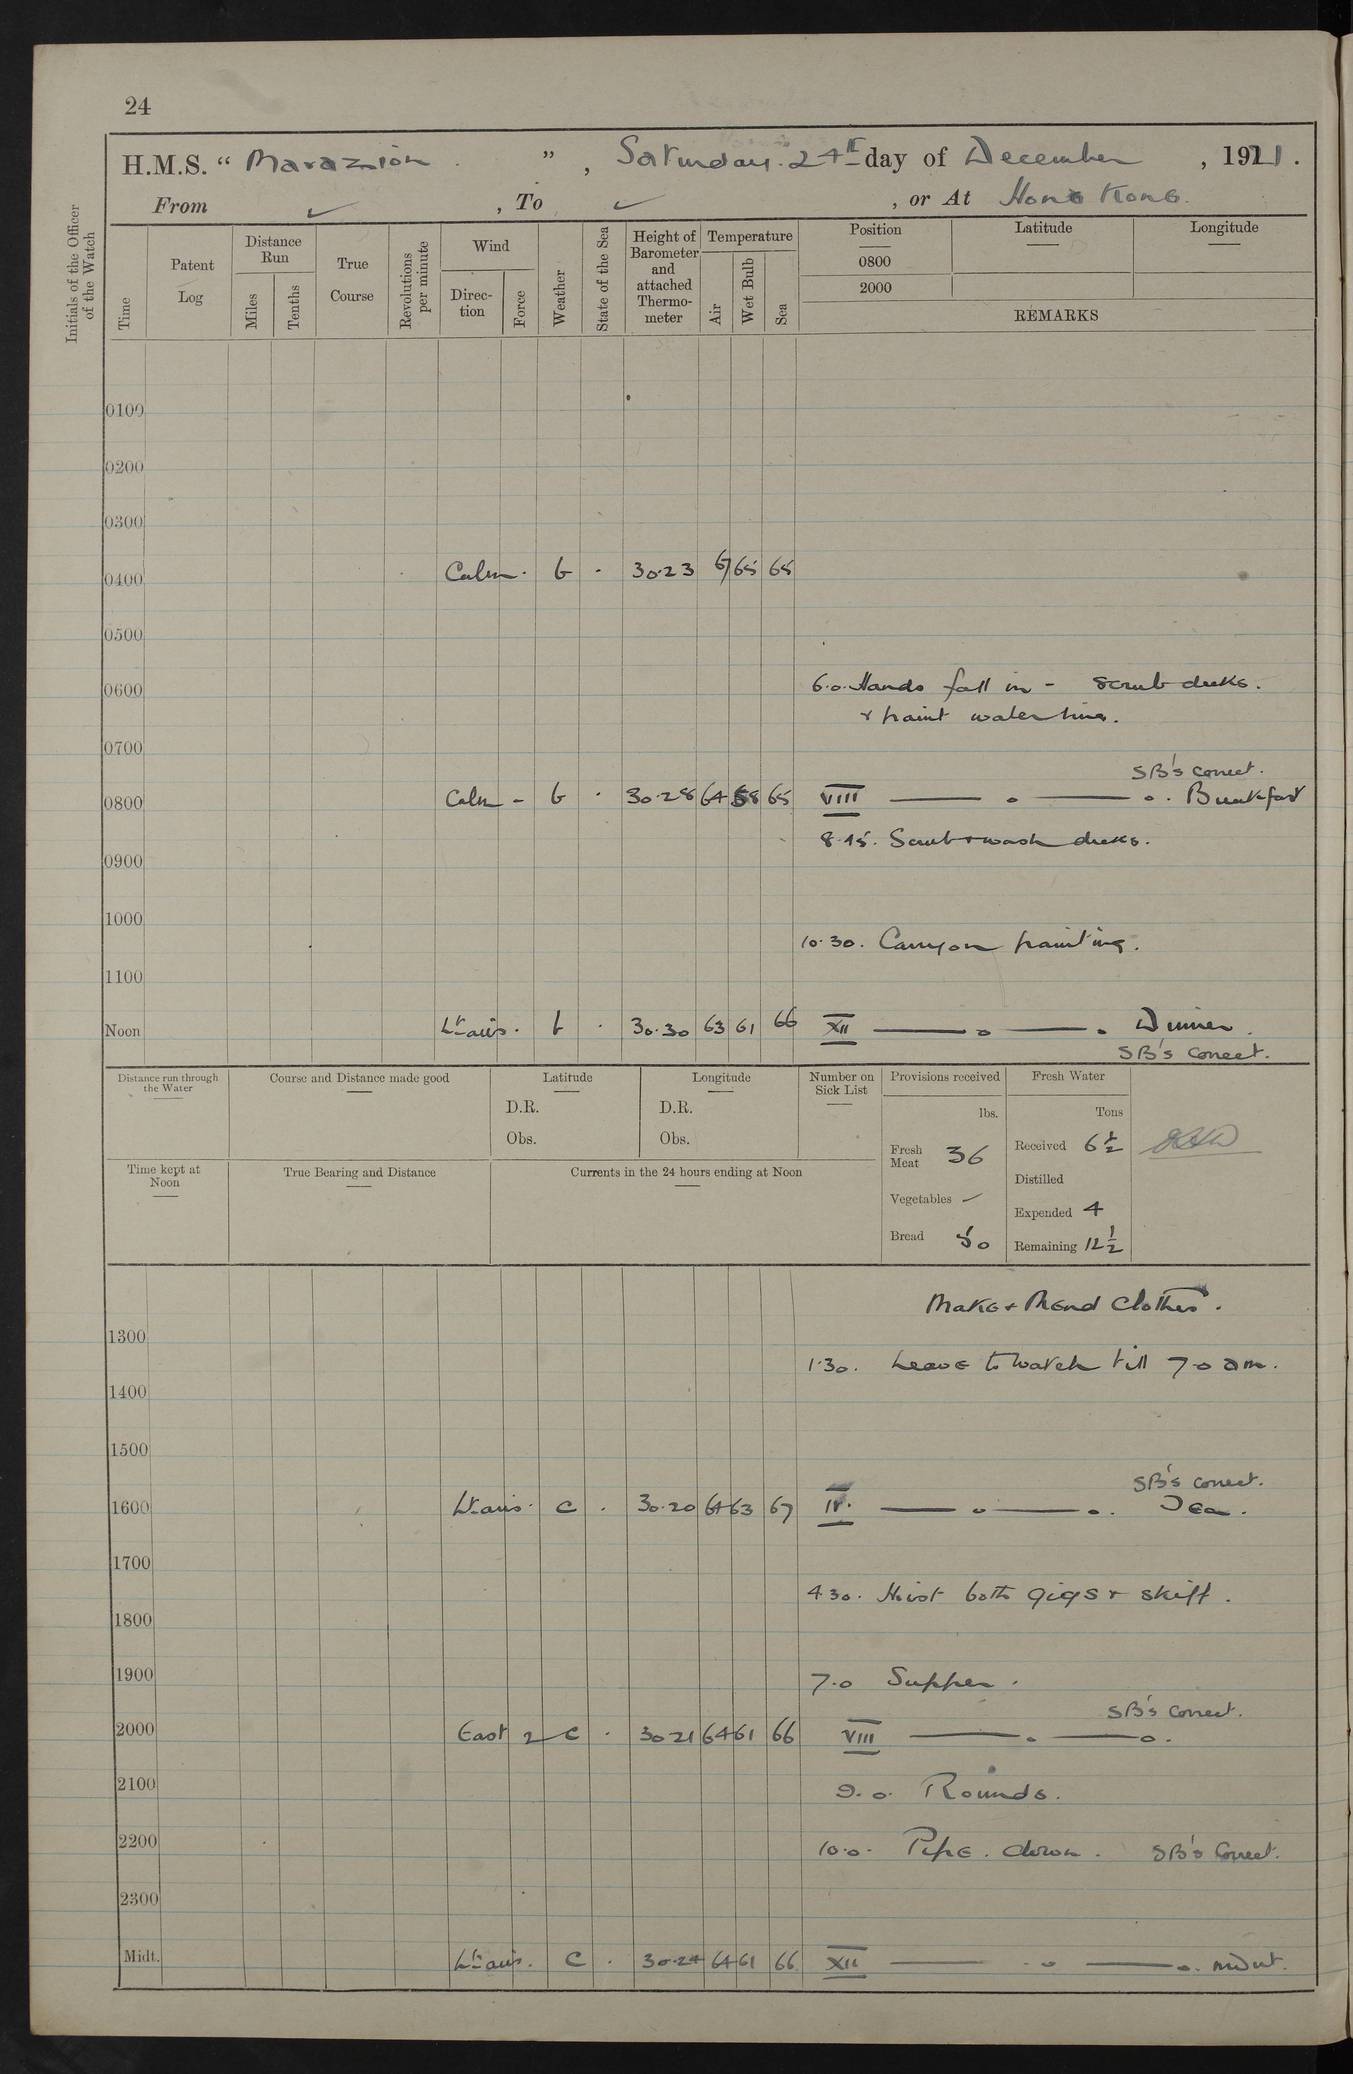 24
H.M.S. “ Marazion ” , Saturday 24th day of December , 1921 .
From ✓ , To ✓ , or At Hong Kong.
Initials of the Officer of the Watch
Time
Patent Log
Distance Run
Miles
Tenths
True Course
Revolutions per minute
Wind
Direction
Force
Weather
State of the Sea
Height of Barometer and attached Thermometer
Temperature
Air
Wet Bulb
Sea
Position
0800
2000
Latitude
Longitude
REMARKS
0100
0200
0300
0400 Calm - b . 30.23 67 65 65
0500
0600 6.0. Hands fall in - scrub decks.
+ paint waterline.
0700
SB's correct.
0800 Calm - b . 30.28 64 58 65 VIII — o — o. Breakfast
8.45. Scrub + wash decks.
0900
1000
10.30. Carry on painting.
1100
Noon Lt airs. b . 30.30 63 61 66 XII — o — o Dinner.
SB's correct.
Distance run through the Water
Course and Distance made good
Latitude
D.R.
Obs.
Longitude
D.R.
Obs.
Number on Sick List
Provisions received
lbs.
Fresh Meat 36
Vegetables -
Bread 50
Fresh Water
Tons
Received 6 1/2
Distilled
Expended 4
Remaining 12 1/2
Time kept at Noon
True Bearing and Distance
Currents in the 24 hours ending at Noon
Make + Mend Clothes.
1300
1.30. Leave to watch till 7.0 am.
1400
1500
SB's correct.
1600 Lt airs. c . 30.20 64 63 67 IV. — o — o. Tea.
1700
4.30. Hoist both gigs + skiff.
1800
1900 7.0 Supper.
SB's correct.
2000 East 2 c . 30 21 64 61 66 VIII — o — o.
2100 9.0. Rounds.
2200 10.0. Pipe down. SB's Correct.
2300
Midt. Lt airs. c . 30.24 64 61 66 XII — o — o. midnt.